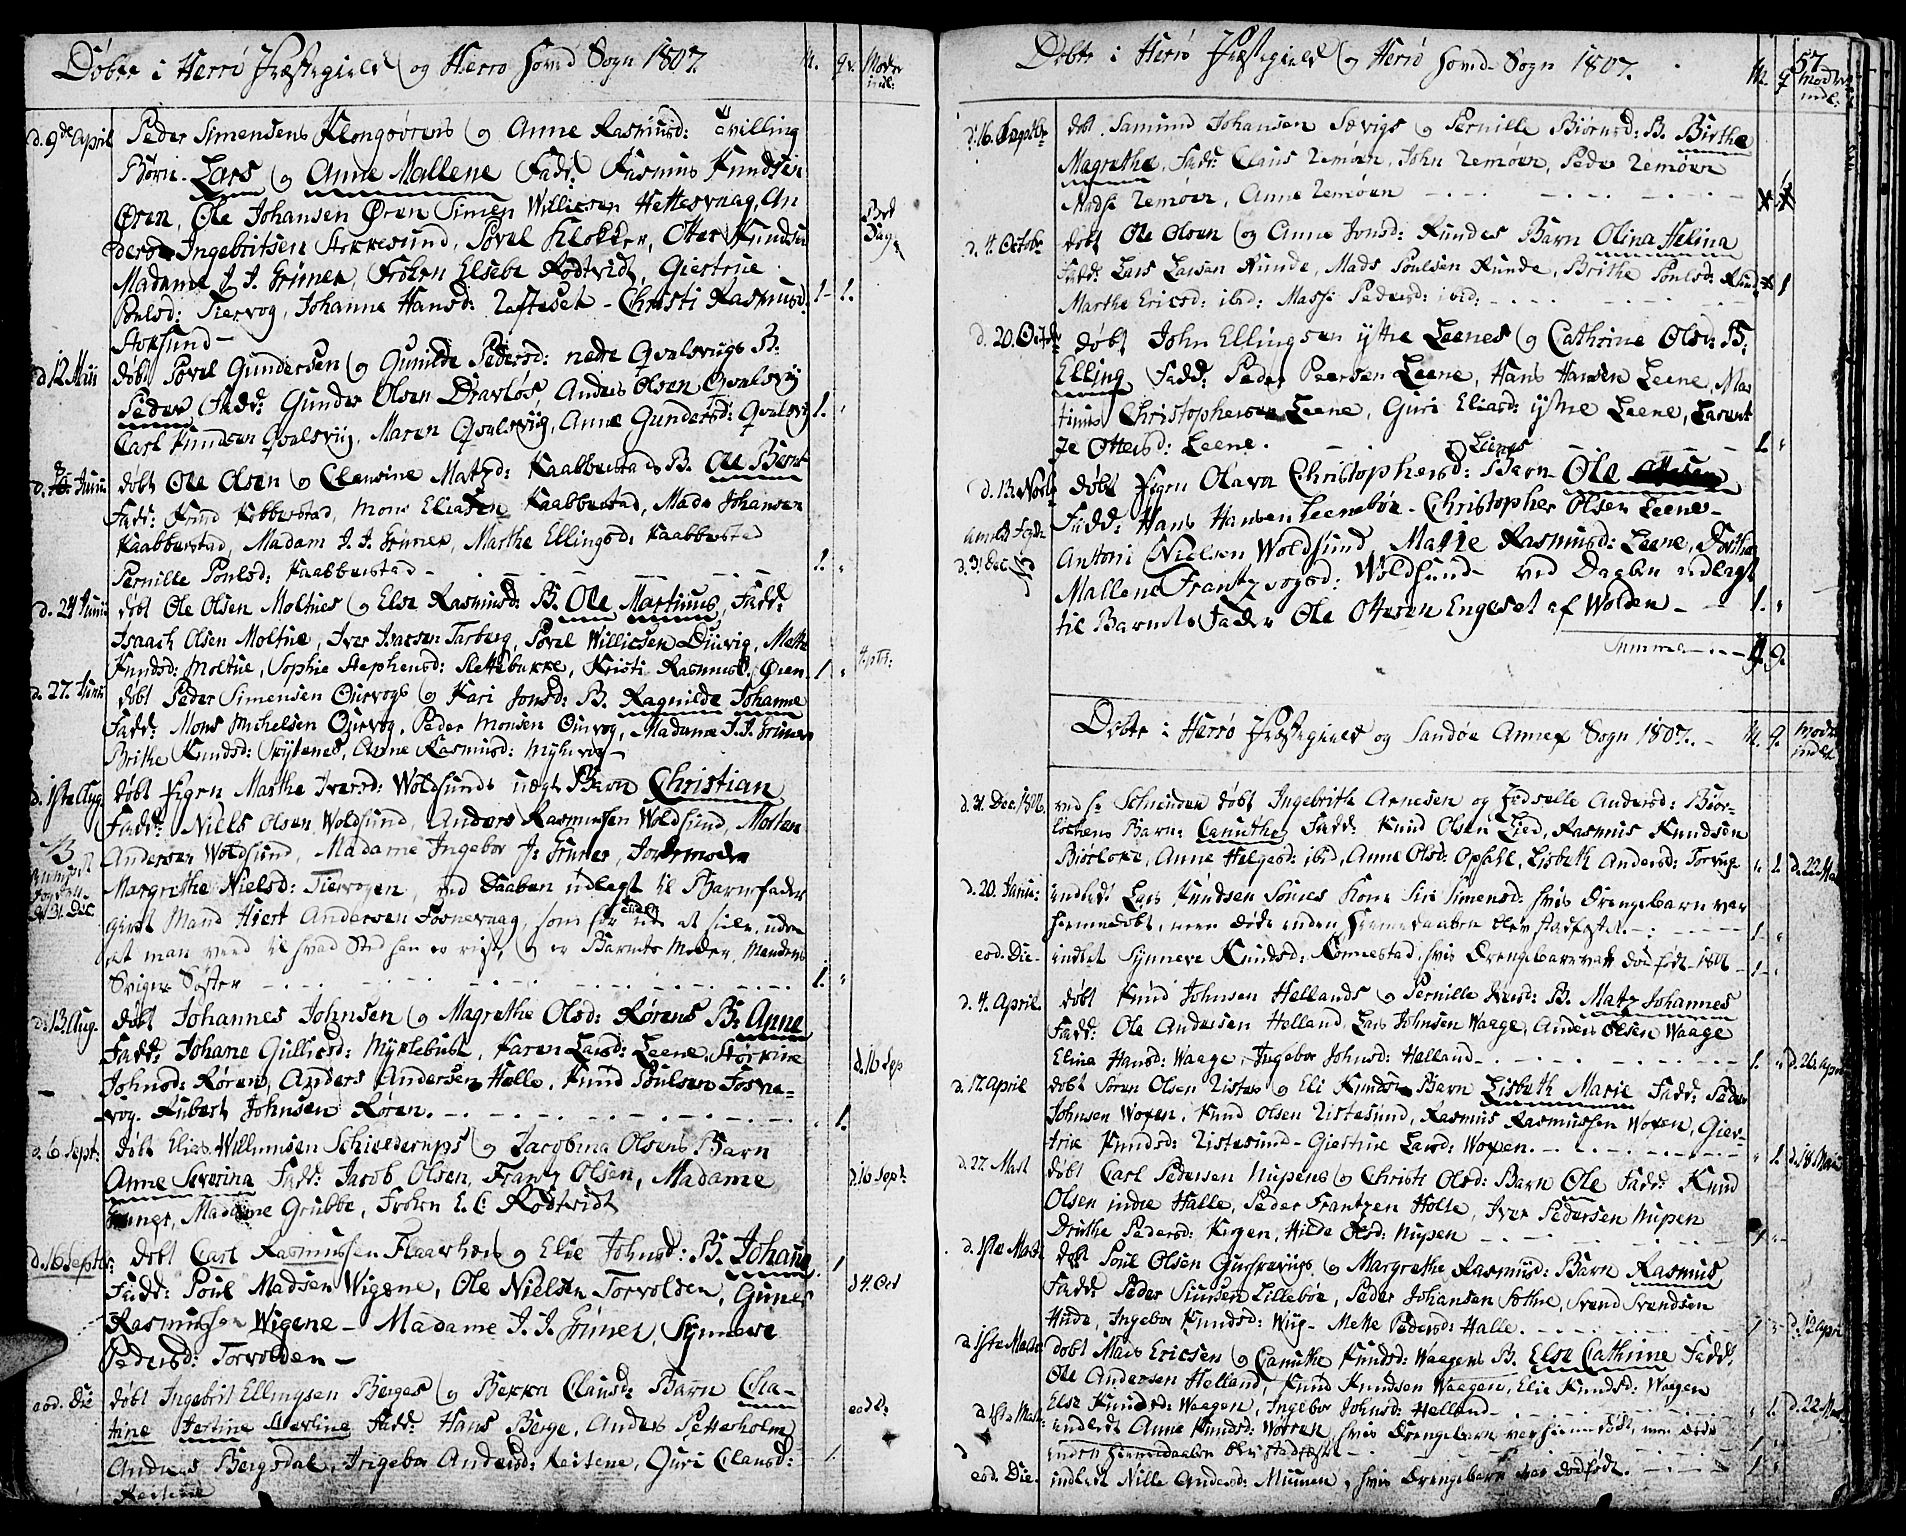 Døbte i Herrö Præstegield og Herrö Hoved Sogn 1807. M. Qv. Moder indl:
d. 9de April Peder Simensens Klongsörens og Anne Rasmusd: tvilling
Børn. Lars og Anne Mallene Fadd: Rasmus Knudsen
Øren, Ole Johansen Øren Simen Willicsen Hettesvaag, An
ders Ingebritsen Storresund, Povel Klokker, Otter Knudsen
Madame J. J. Grüner, Frøken Elsebe Rodtvidt, Giertrue
Poulsd: Tiervog, Johanne Hansd: Tofteset - Christi Rasmusd: 1 - 1.
Stoksund -
d. 12 Maii døbt Povel Gundersen og Gunilde Pedersd: nedre Qvalsvigs B:
Peder, Fadd: Gunder Olsen Dravløs, Anders Olsen Qvalsviig
Carl Knudsen Qvalsviig, Maren Qvalsviig, Anne Gundersd: Qvalsvig 1.
Junii døbt Ole Olsen og Clensine Matzd: Kaabbestads B. Ole Bernt
Fadd: Knud Kobbestad, Mons Eliasen Kaabbestad, Mads Johansen
Kaabbestad, Madam J. J. Grüner, Marthe Ellingsd: Kaabbestad
Pernille Poulsd: Kaabbestad - 1.
d. 24 Junii døbt Ole Olsen Moltues og Else Rasmusd: B. Ole Martinus, Fadd:
Isaach Olsen Moltue, Iver Ivarsen Tarberg, Povel Willicsen Diivig, Mette
Knudsd: Moltue, Sophie Stephensd: Slettebakke, Kristi Rasmusd: Øren 1
d. 27. Junii døbt Peder Simensen Qurvogs og Kari Jonsd: B. Ragnilde Johanne
Fadd: Mons Michelsen Qurvog, Peder Monsen Qurvog, Madame J. J. Grüner
Brithe Knudsd: Skytenes, Anne Rasmusd: Myhrvog -
d. 1ste Aug. døbt Pigen Marthe Iversd: Woldsunds uægte Barn Christian
Fadd: Niels Olsen Woldsund, Anders Rasmussen Woldsund, Morten
Andersen Woldsund, Madame Ingebor J: Grüner, Jordemoder
d. 31. Dec Margrethe Nielsd: Tiervogen, ved Daaben udlagt til Barnefader
givt Mand Hiert Andersen Fosnevaag, som for
at man veed til hvad Sted han er reist, og er Barnets Moder, Mandens
Svigers Søster 1.
d: 13. Aug. døbt Johannes Johnsen og Magrethe Olsd: Rørens B: Anne
Fadd: Johane Gulliesd: Myklebust, Karen Larsd: Leene, Størkine
Johnsd: Røren, Anders Andersen Halle, Knud Poulsen Fosne- d. 16 Sep
vog. Rubert Johnsen Røren. 1.
d. 6. Sept: døbt Elias Willumsen Schielderups og Jacobina Olsens Barn
Anne Severina Fadd: Jacob Olsen, Frantz Olsen, Madame d. 16 Sept:
Grüner, Madame Grubbe, Frøkn E. C. Rodtvidt
d. 16 Septbr: døbt Carl Rasmussen Flaavhens og Elie Johnsd: B. Johane 1
Fadd: Poul Madsen Wigene, Ole Nielsen Torvolden, Guner d 4. Oct
Rasmussen Wigene - Madame J. J. Grüner, Synneve
Pedersd: Torvolden -
eod. Die døbt Ingebrit Ellingsen Berges og Bekka Clausd: Barn Cha- eod D:
tine Jertine Sevrine Fadd: Hans Berge, Anders Petterholm
Andreas Bergsdal, Ingebor Andersd: Keitene, Guri Clausd:
Keitene
Døbte i Herrö Præstegield og Herrö Hoved- Sogn 1807. M. Q 57 Moders indl:
d. 16. Septbr døbt Samund Johansen Sævigs og Pernille Biørnsd: B. Birthe
Magrethe, Fadd: Claus Remøen, John Remøen, Peder Remøen
Madse Remøen, Anne Remøen 1
d. 4. Octobr døbt Ole Olsen og Anne Jonsd: Rundes Barn Olina Helina
Fadd: Lars Larsen Runde, Mads Poulsen Runde, Brithe Poulsd: Runde 1
Marthe Ericsd: ibd: Masse Pedersd: ibid:
d. 20. Octbr døbt John Ellingsen yttre Leenes og Cathrine Olsd: B:
Elling Fadd: Peder Peersen Leene, Hans Hansen Leene, Mar
tinus Christophersen Leene, Guri Eliasd: yttre Leene, Larent
ze Ottersd: Leene. 1.
Leenes
d. 13. Novbr døbt Pigen Olava Christophersd: Barn Ole
Fadd: Hans Hansen Leenebøe - Christopher Olsen Leene -
d. 31 Dec Antoni Nielsen Woldsund Masse Rasmusd: Leene, Dorthe
Mallene Frantzsogsd: Woldsund - ved Daaben udlagt
til Barnets Fader Ole Ottesen Engeset af Wolden - 1.
Summa 9.
Døbte i Herrö Præstegield og Sandøe Annex Sogn 1807. M. Q. Moders indl:
d. 31. Dec. 1806 ved Hr Schneider døbt Ingebrith Arnesen og Zidselle Andersd: Biør-
lochens Barn: Canuthe Fadd: Knud Olsen Lied, Rasmus Knudsen
Biørloke, Anne Helgesd: ibid, Anne Olsd: Opsahl, Lisbeth Andersd: Torvug 1. d. 22 Mar
d. 20. Janu: indledt Lars Knudsen Sønes Kone Siri Simensd: hvis Drengebarn var
hiemmedøbt, men døde inden Hiemedaaben blev stadfæstet. 1
eod. Die indlet Synneve Knudsd: Rønnestad, hvis Drengebarn var dødfødt - 1806 - 1
d. 4. April. døbt Knud Johnsen Hellands og Pernille Iversd: B. Matz Johannes
Fadd: Ole Andersen Helland, Lars Johnsen Waage, Anders Olsen Waage
Eline Hansd: Waage, Ingebor Johnsd: Helland 1. d. 26. April
d. 17 April døbt Søren Olsen Ristes og Eli Knudsd: Barn Lisbeth Marie Fadd: Peder
Johnsen Woxen, Knud Olsen Ristesund, Rasmus Rasmussen Woxen, Gier-
true Knudsd: Ristesund - Giertrue Larsd: Woxen. 1. d. 18 Maii
d. 27. Mart døbt Carl Pedersen Nupens og Christi Olsd: Barn Ole Fadd: Knud
Olsen indre Halle, Peder Frantzen Holte, Iver Pedersen Nupen
Druthe Pedersd: Kiogen, Hilda Olsd: Nupen 1
d. 1ste Marti døbt Poul Olsen Gursrevugs og Margrethe Rasmusd: Barn Rasmus
Fadd: Peder Siursen Lillebøe, Peder Johansen Søthne, Svend Svendsen
Huda, Ingebor Knudsd: Wiig - Mette Pedersd: Halle. 1 d. 12 April
d 1ste Marti døbt Mads Ericsen og Canuthe Knudsd: Waagens B. Else Cathrine Fadd:
Ole Andersen Helland, Knud Knudsen Waagen, Elie Knudsd: Waagen
Else Knudsd: Waagen, Ingebor Johnsd: Helland 1. d. 22. Mar
d 1ste Mart: indledt Anne Knudsd: Woxen, hvis Drengebarn var hiemedøbt, men døde
inden Hiemedaaben blev stadfæstet 1
eod. Die. indledt Nille Andersd: Muenen, hvis Drengebarn var dødfødt. 1